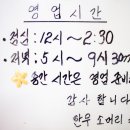 영업시간
점심: 12시~2:30
저녁: 5시~9시30
중간 시간은 영업 준비
감사합니다
한우 소머리